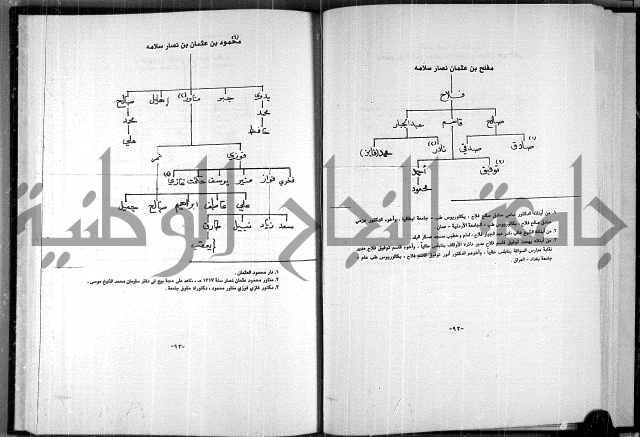 مفلح بن عثمان نصار سلامه
فلاح
صالح قاسم عبدالجبار
صادق (١) صدقي نادر (٢) محمد (فايق)
توفيق (٣) أحمد
محمود
١. من أبنائه الدكتور سامي صادق صالح فلاح ، بكالوريوس طب ، جامعة ايطاليا ، وأخوه الدكتور عزمي
صادق صالح فلاح ، بكالوريوس طب ، الجامعة الأردنية - عمان
٢. من أبنائه الشيخ غالي نادر عبد الجبار فلاح ، امام وخطيب مسجد عسكر البلد
٣. من أبنائه بهجت توفيق قاسم فلاح مدير دائرة الأوقاف بنابلس حالياً ، وأخوه قاسم توفيق فلاح مدير
نقابة مدارس السواقة بنابلس حالياً ، وأخوهم الدكتور أنور توفيق قاسم فلاح ، بكالوريوس طب عام ،
جامعة بغداد - العراق .
-٩٢-
محمود بن عثمان بن نصار سلامه (١)
يدوي جبر مناور (٢) إهليل صالح
محمد محمد
حافظ علي
فوزي نمر
فخري فواز منير يوسف حكمت غازي (٣)
علي عاطف ابراهيم صالح جميل
سعد زياد نبيل طارق
يعقوب
١. دار محمود العثمان .
٢. مناور محمود عثمان نصار سنة ١٣١٧ هـ ، شاهد على حجة بيع في دفتر سليمان محمد الشيخ موسى .
٣. دكتور غازي فوزي مناور محمود ، دكتوراة حقوق جامعة .
-٩٣-
جامعة النجاح الوطنية